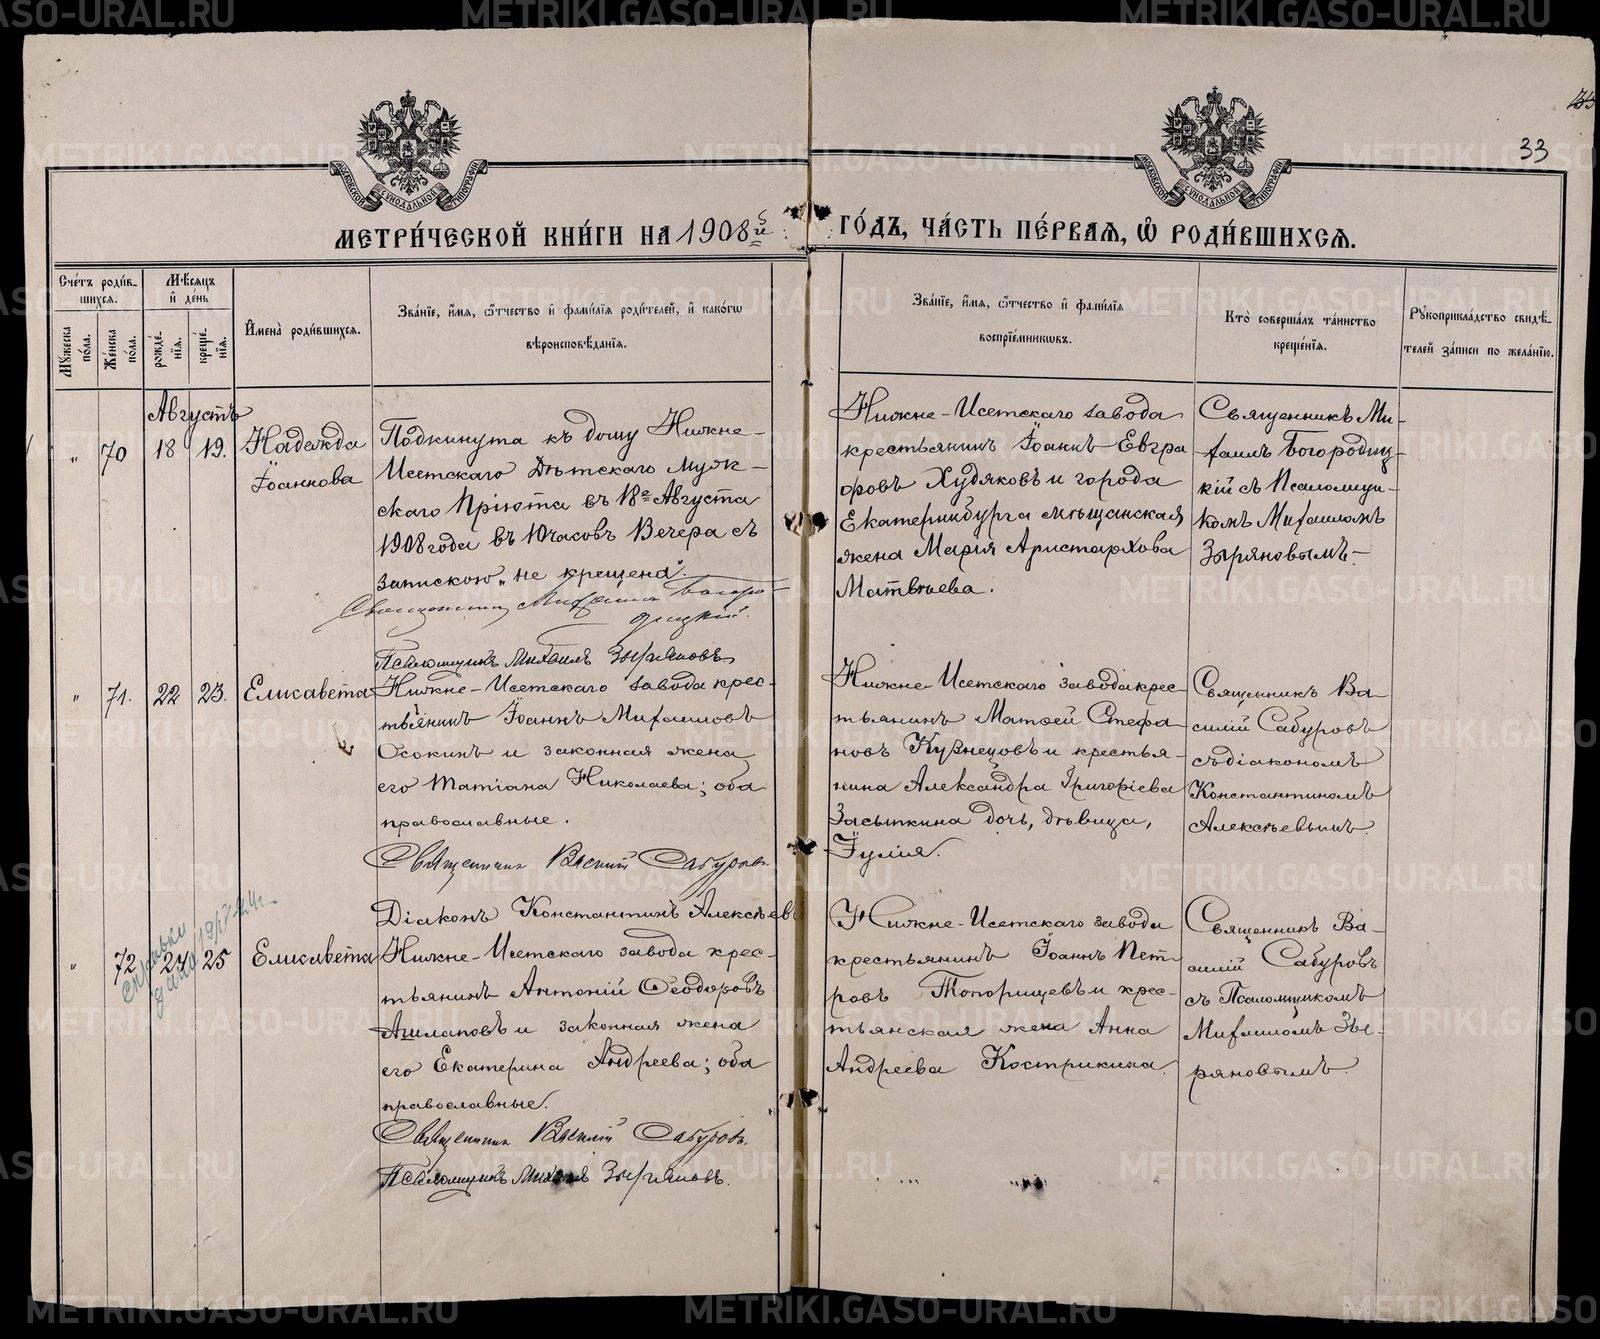 33
МОСКОВСКОЙ СѴНОДАЛЬНОЙ ТИПОГРАФІИ
МОСКОВСКОЙ СѴНОДАЛЬНОЙ ТИПОГРАФІИ
МЕТРИ́ЧЕСКОЙ КНИ́ГИ НА 1908й
ГО́ДЪ, ЧА́СТЬ ПЕ́РВАѦ, Ѡ҆ РОДИ́ВШИХСѦ.
Сче́тъ роди́в-
шихсѧ.
Мꙋжеска по́ла.
Же́нска по́ла.
Мѣ́сѧцъ
и҆ де́нь
рожде́-
нїѧ.
креще́-
нїѧ.
И҆мена̀ роди́вшихсѧ.
Зва́нїе, и҆́мѧ, ѻ҆́тчество и҆ фами́лїѧ роди́телей, и҆ како́гѡ
вѣроисповѣ́данїѧ.
Зва́нїе, и҆́мѧ, ѻ҆́тчество и҆ фами́лїѧ
воспрїе́мникѡвъ.
Кто̀ соверша́лъ та́инство
креще́нїѧ.
Рꙋкоприкла́дство свидѣ́-
телей за́писи по жела́нїю.
Августъ
„ 70 18 19. Надежда
Іоаннова
Подкинута къ дому Нижне-
Исетскаго Дѣтскаго Муж-
скаго Пріюта въ 18е Августа
1908 года въ 10 часовъ Вечера съ
запискою „не крещена“.
Священникъ Михаилъ Богоро-
дицкій.
Псаломщикъ Михаилъ Зыряновъ
Нижне-Исетскаго завода
крестьянинъ Іоаннъ Евгра
фовъ Худяковъ и города
Екатеринбурга мѣщанская
жена Марія Аристархова
Матвѣева.
Священникъ Ми-
хаилъ Богородиц-
кій съ Псаломщи-
комъ Михаиломъ
Зыряновымъ.
„ 71. 22 23. Елисавета
Нижне-Исетскаго завода крес-
тьянинъ Іоаннъ Михаиловъ
Осокинъ и законная жена
его Татіана Николаева; оба
православные.
Священникъ Василій Сабуровъ
Діаконъ Константинъ Алексѣевъ
Нижне-Исетскаго завода крес-
тьянинъ Матѳей Стефа
новъ Кузнецовъ и крестья-
нина Александра Григоріева
Засыпкина дочь, дѣвица,
Іулія.
Священникъ Ва-
силій Сабуровъ
съ діакономъ
Константиномъ
Алексѣевымъ.
„ 72. 24 25 Елисавета
Нижне-Исетскаго завода крес-
тьянинъ Антоній Ѳеодоровъ
Ашлаповъ и законная жена
его Екатерина Андреева; оба
православные.
Священникъ Василій Сабуровъ.
Псаломщикъ Михаилъ Зыряновъ.
Нижне-Исетскаго завода
крестьянинъ Іоаннъ Пет-
ровъ Топорищевъ и крес-
тьянская жена Анна
Андреева Кострикина.
Священникъ Ва-
силій Сабуровъ
съ Псаломщикомъ
Михаиломъ Зы-
ряновымъ.
METRIKI.GASO-URAL.RU